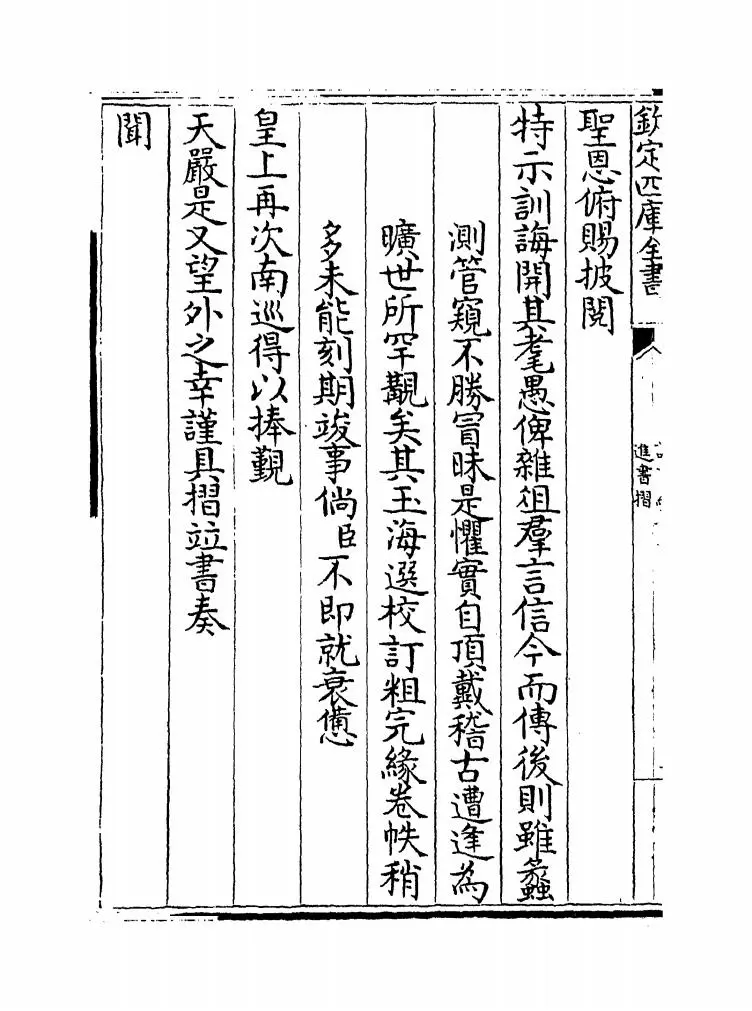 欽定四庫全書
進書摺
聖恩俯賜披閱
特示訓誨開其耄愚俾雜俎羣言信今而傳後則雖蠡
測管窺不勝冒昧是懼實自頂戴稽古遭逢為
曠世所罕覯矣其玉海選校訂粗完緣卷帙稍
多未能刻期竣事倘臣不即就衰憊
皇上再次南巡得以捧覲
天嚴是又望外之幸謹具摺竝書奏
聞